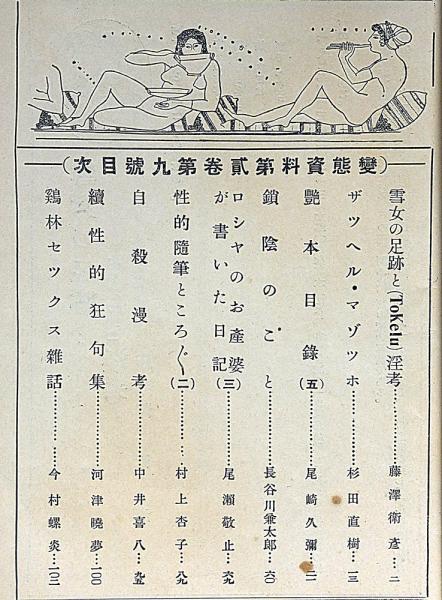 變態資料第貳卷第九號目次
雪女の足跡と(Tokelu)淫考………藤澤衞彥…二
ザツヘル・マゾツホ………杉田直樹…一三
艷本目錄(五)………尾崎久彌…二一
鎖陰のこと………長谷川兼太郎…六〇
ロシヤのお產婆が書いた日記(三)………尾瀨敬止…六九
性的隨筆ところ〴〵(二)………村上杏子…八九
自殺漫考………中井喜八…九五
續性的狂句集………河津曉夢…一〇〇
鷄林セツクス雜話………今村螺炎…一〇二